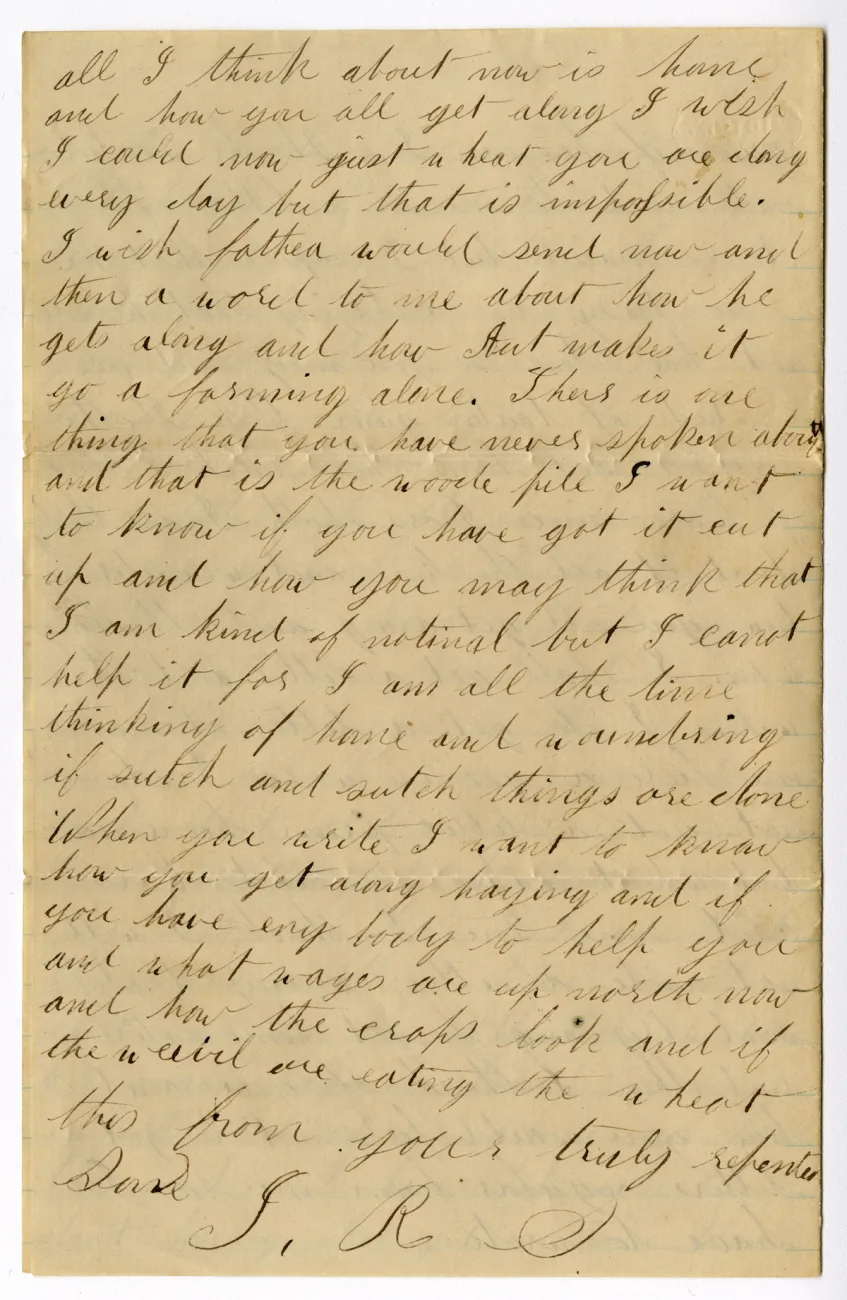 all I think about now is home
and how you all get along I wish
I could now just wheat you are doing
every day but that is impossible.
I wish father would send now and
then a word to me about how he
gets along and how Aut makes it
go a farming alone. Thers is one
thing that you have never spoken about
and that is the woode pile I want
to know if you have got it cut
up and how you may think that
I am kind of notinal but I canot
help it for I am all the time
thinking of home and woundering
if sutch and sutch things are done
When you write I want to know
how you get along haying and if
you have eny body to help you
and what wages are up north now
and how the crops look and if
the weevil are eating the wheat
this from yours truly repented
Son
J. R. S